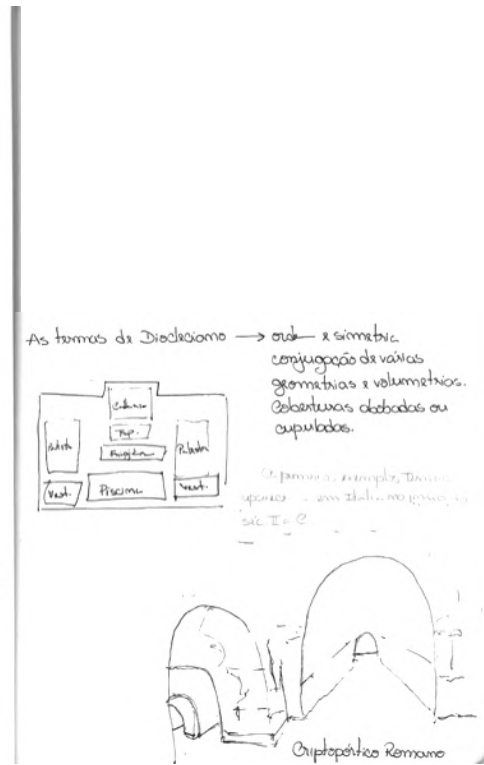 As termas de Diocleciano → ordem e simetria
conjugação de várias
geometrias e volumetrias.
Coberturas abobadas ou
cupuladas.
Tep.
Frigidar
Palestra
Vest.
Piscina
Vest.
Os primeiros exemplos, Termas
em Italia no
séc. II a C
Criptopórtico Romano